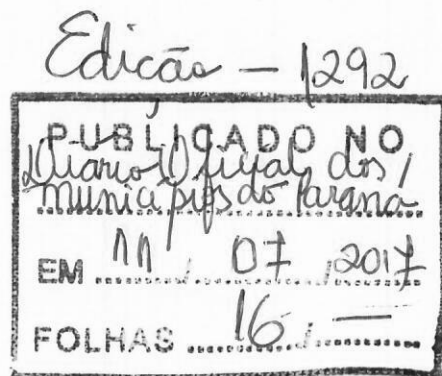 Edição - 1292
PUBLICADO NO
Diario Oficial dos
Municipios do Paraná
EM 11 / 07 / 2017
FOLHAS 16 / —